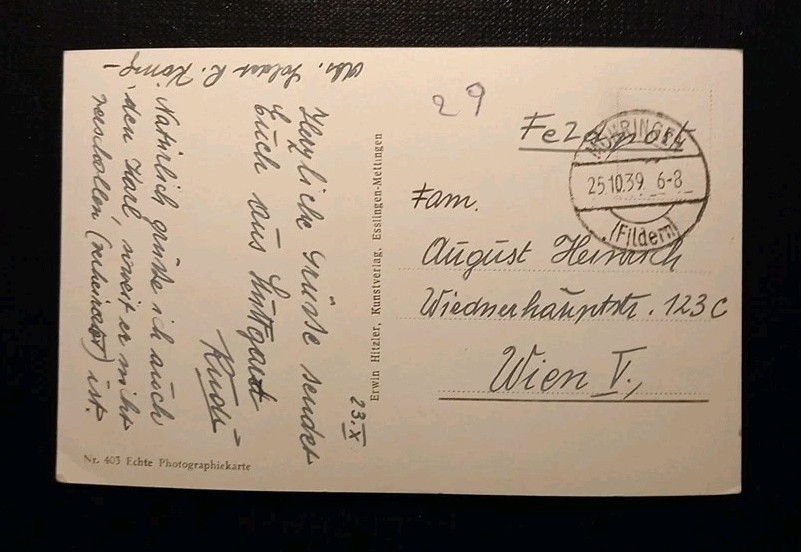 Abs. Soldat R. König -
Herzliche Grüsse sendet
Euch aus Stuttgart
Rudi
23.X
Natürlich grüße ich auch
den Karl, soweit er nicht
verschollen () ist.
Erwin Hitzler, Kunstverlag, Esslingen-Mettingen
Nr. 403 Echte Photographiekarte
29
Feldpost
MÖHRINGEN
25.10.39 6-8
(Fildern)
Fam.
August Heinrich
Wiednerhauptstr. 123c
Wien V.,